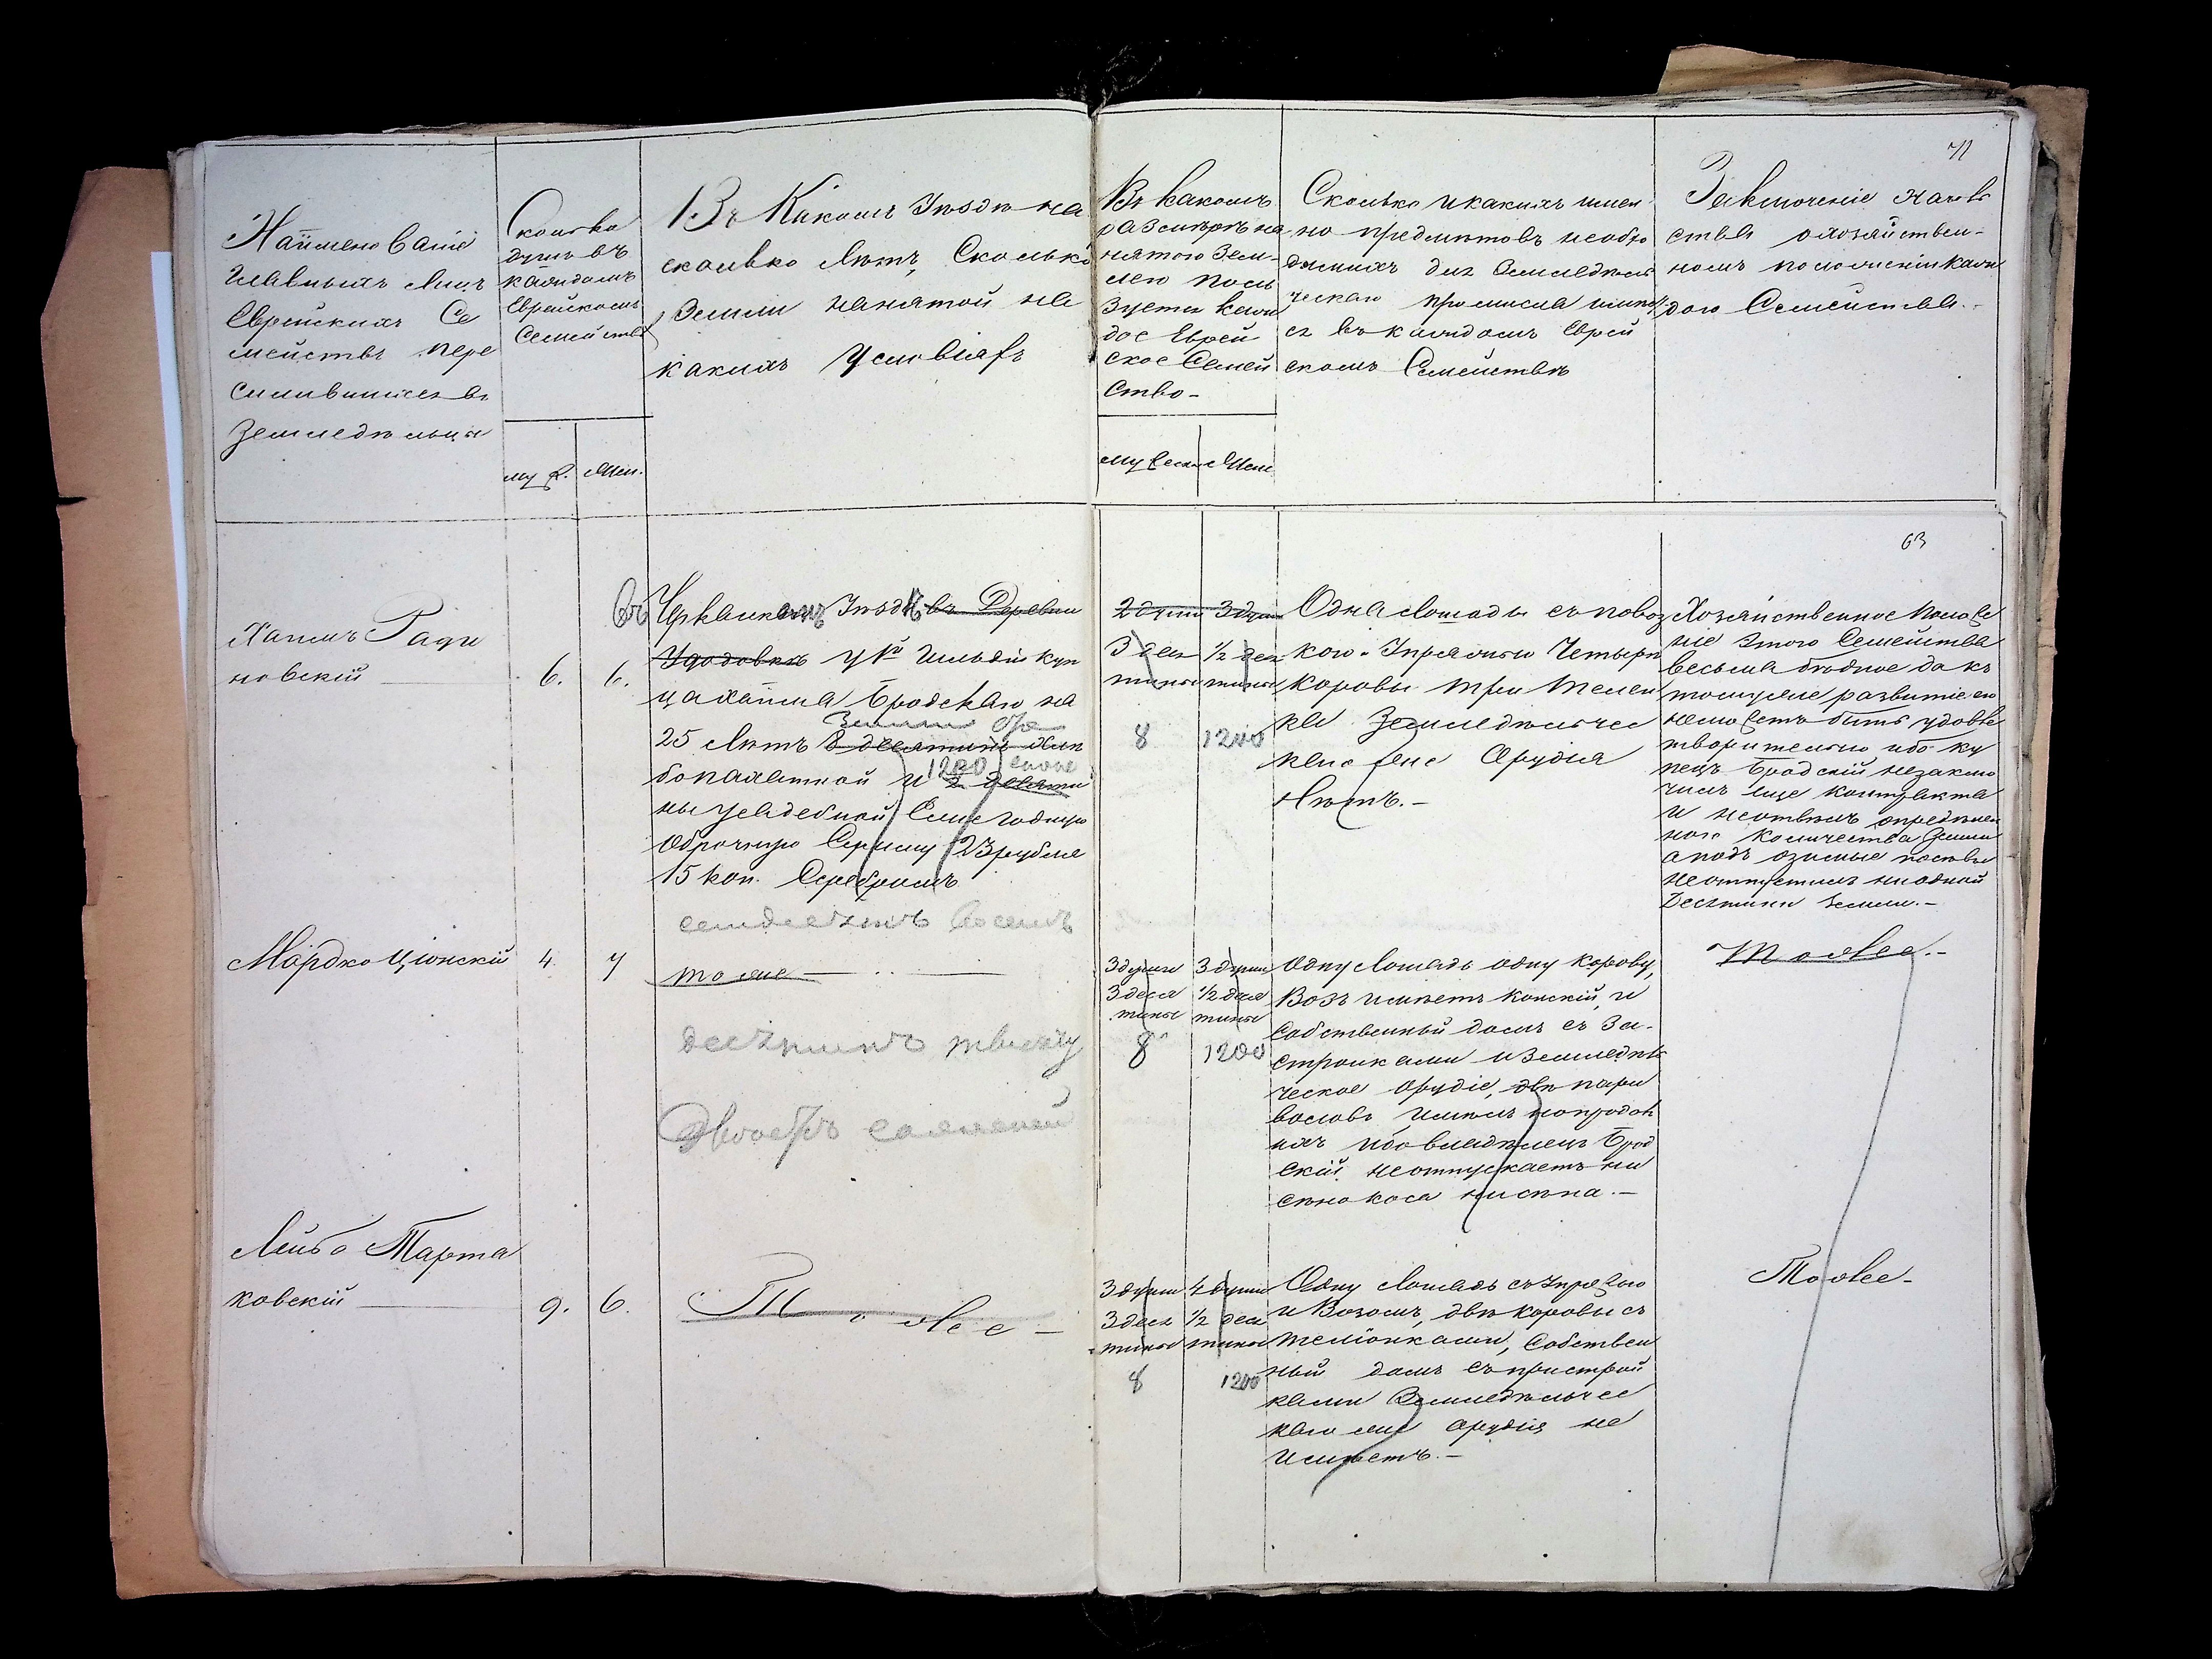 71
Наименованіе
главныхъ лицъ
Еврейскихъ Се
мействъ пере
силившихся въ
земледѣльцы
Сколько
душъ въ
каждомъ
Еврейскомъ
Семействѣ
муж.
жен.
Въ Какомъ Уѣздѣ на
сколько лѣтъ, Сколько
земли нанятой на
какихъ Условіяхъ
Въ какомъ
размѣрѣ на
нятою Зем-
лею поль
зуется каж
дое Еврей
ское Семей
ство-
мужеск
Жен
Сколько и какихъ имен
но предметовъ необхо
димыхъ для Земледѣль
ческаго промысла имѣет
ся въ каждомъ Еврей
скомъ Семействѣ
Заключеніе началь
ства о хозяйствен-
номъ положеніи каж
дого Семейства.-
63
Хаимъ
новскій
6.
6.
Въ Черкаскомъ Уѣздѣ въ Деревни
у Кѵ Гильдіи куп
ца Хаима Бродскаго на
25 лѣтъ 8 десятинъ хлѣ
бопахатной и 2 десяти
1200
ны усадебной Ежегодную
оброчную Сумму 23 рубля
15 коп. Серебромъ
семдесятъ восемъ
2 души
3 души
3 деся
тины
1/2 деся
тины
8
1200
Одна лошадь съ повоз
кою Упряжью Четыри
коровы три телен
ка Земледѣльчес
каго же Орудія
Нѣтъ.-
Хозяйственное Положе
ніе этого Семейства
весьма бѣдное да къ
тому же развитіе его
не можетъ быть удовле
творительно ибо ку
пецъ Бродскій незаклю
чилъ еще контракта
и неотвелъ опредѣлен
ного количества Земли
а подъ озимые посѣвы
неотпустилъ ниодной
Десятини земли.-
Мордко Ціонскій
4.
7
тоже
десятинъ тысячу
двѣсти саженей
3 души
3 деся
тины
3 души
1/2 деся
тины
8
1200
Одну Лошадь одну корову,
Возъ имѣетъ конскій, и
Собственный домъ съ За-
стройками и Земледѣль
ческое орудіе, двѣ пари
воловъ имѣлъ но продалъ
ихъ ибо владѣлецъ Брод
скій неотпускаетъ ни
сѣнокоса ни сѣна.-
Тоже.-
Лейба Тарта
ковскій
9.
6.
Тоже -
3 души
3 деся
тины
4 души
1/2 деся
тины
8
1200
Одну Лошадь съ Упряжью
и Возомъ, двѣ коровы съ
телёнками, Собствен
ный домъ съ пристрой
ками Земледѣльчес
каго же орудія не
имѣетъ.-
Тоже-